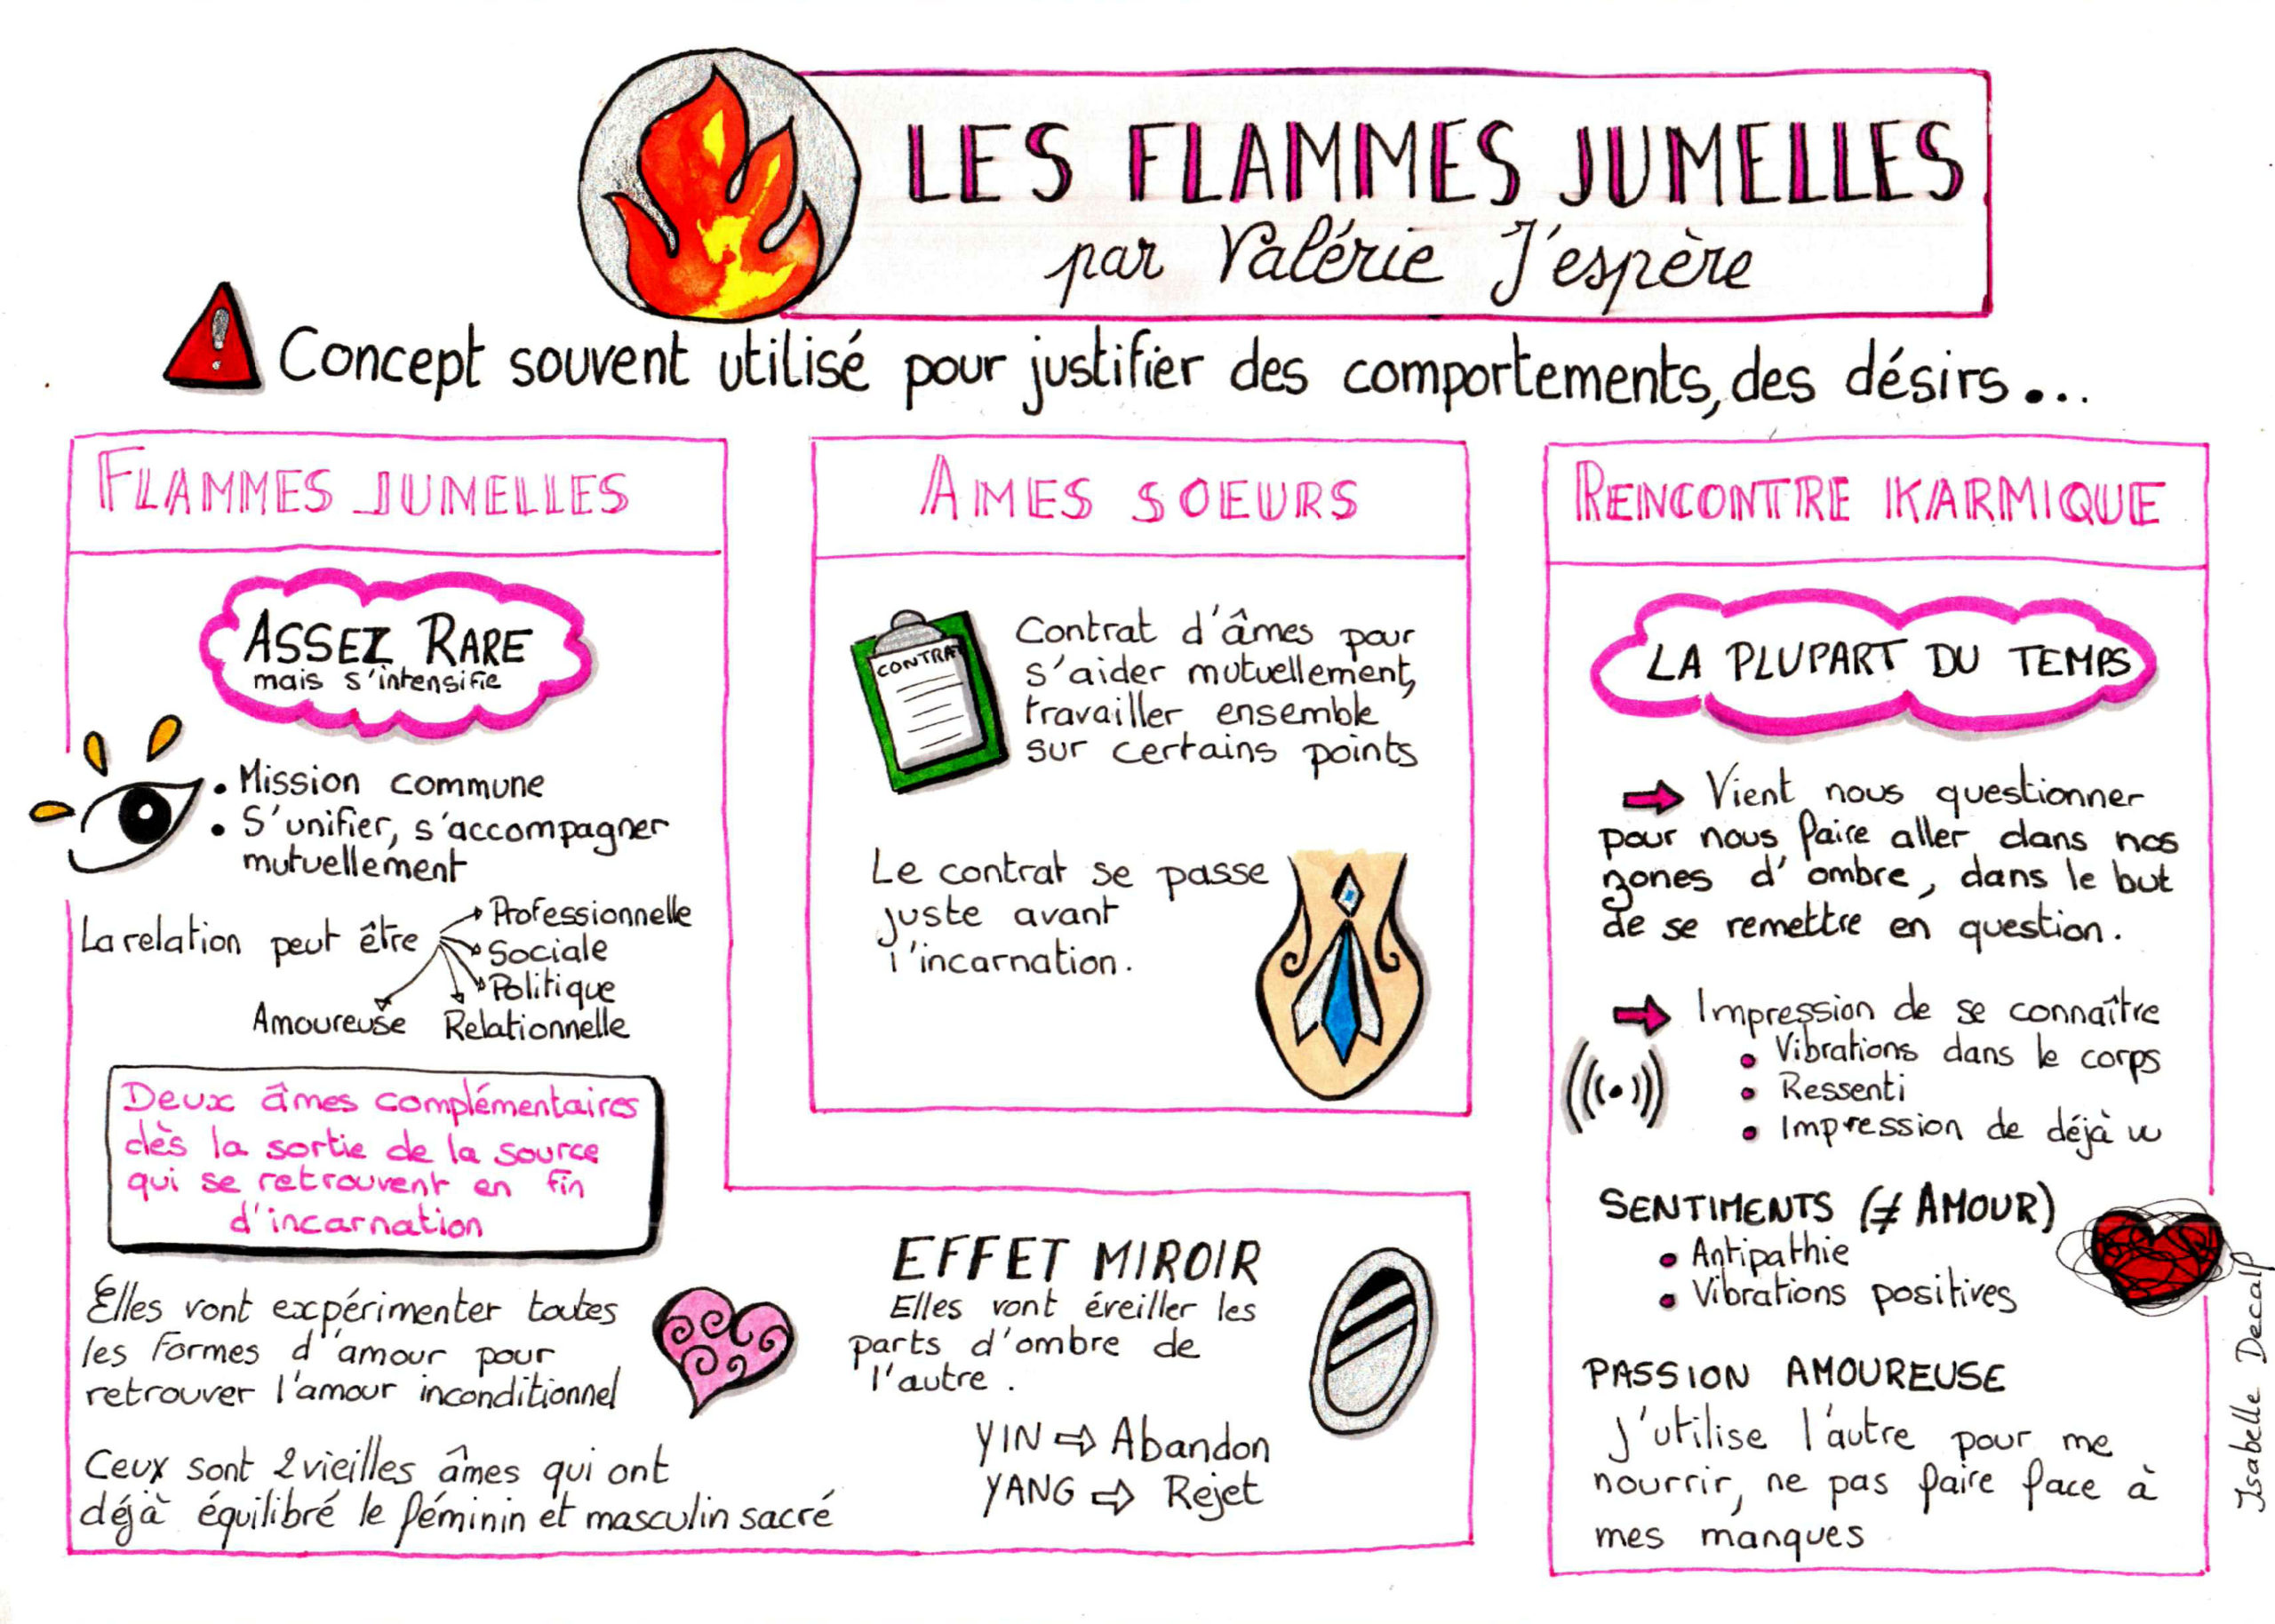 LES FLAMMES JUMELLES
par Valérie J'espère
Concept souvent utilisé pour justifier des comportements, des désirs...
FLAMMES JUMELLES
ASSEZ RARE
mais s'intensifie
• Mission commune
• S'unifier, s'accompagner
mutuellement
La relation peut être
Professionnelle
Sociale
Politique
Relationnelle
Amoureuse
Deux âmes complémentaires
dès la sortie de la source
qui se retrouvent en fin
d'incarnation
Elles vont expérimenter toutes
les formes d'amour pour
retrouver l'amour inconditionnel
Ceux sont 2 vieilles âmes qui ont
déjà équilibré le féminin et masculin sacré
EFFET MIROIR
Elles vont éveiller les
parts d'ombre de
l'autre.
YIN ⇨ Abandon
YANG ⇨ Rejet
AMES SOEURS
CONTRAT
Contrat d'âmes pour
s'aider mutuellement,
travailler ensemble
sur certains points
Le contrat se passe
juste avant
l'incarnation.
RENCONTRE KARMIQUE
LA PLUPART DU TEMPS
→ Vient nous questionner
pour nous faire aller dans nos
zones d'ombre, dans le but
de se remettre en question.
→ Impression de se connaître
• Vibrations dans le corps
• Ressenti
• Impression de déjà vu
SENTIMENTS (≠ AMOUR)
• Antipathie
• Vibrations positives
PASSION AMOUREUSE
J'utilise l'autre pour me
nourrir, ne pas faire face à
mes manques
Isabelle Decalf